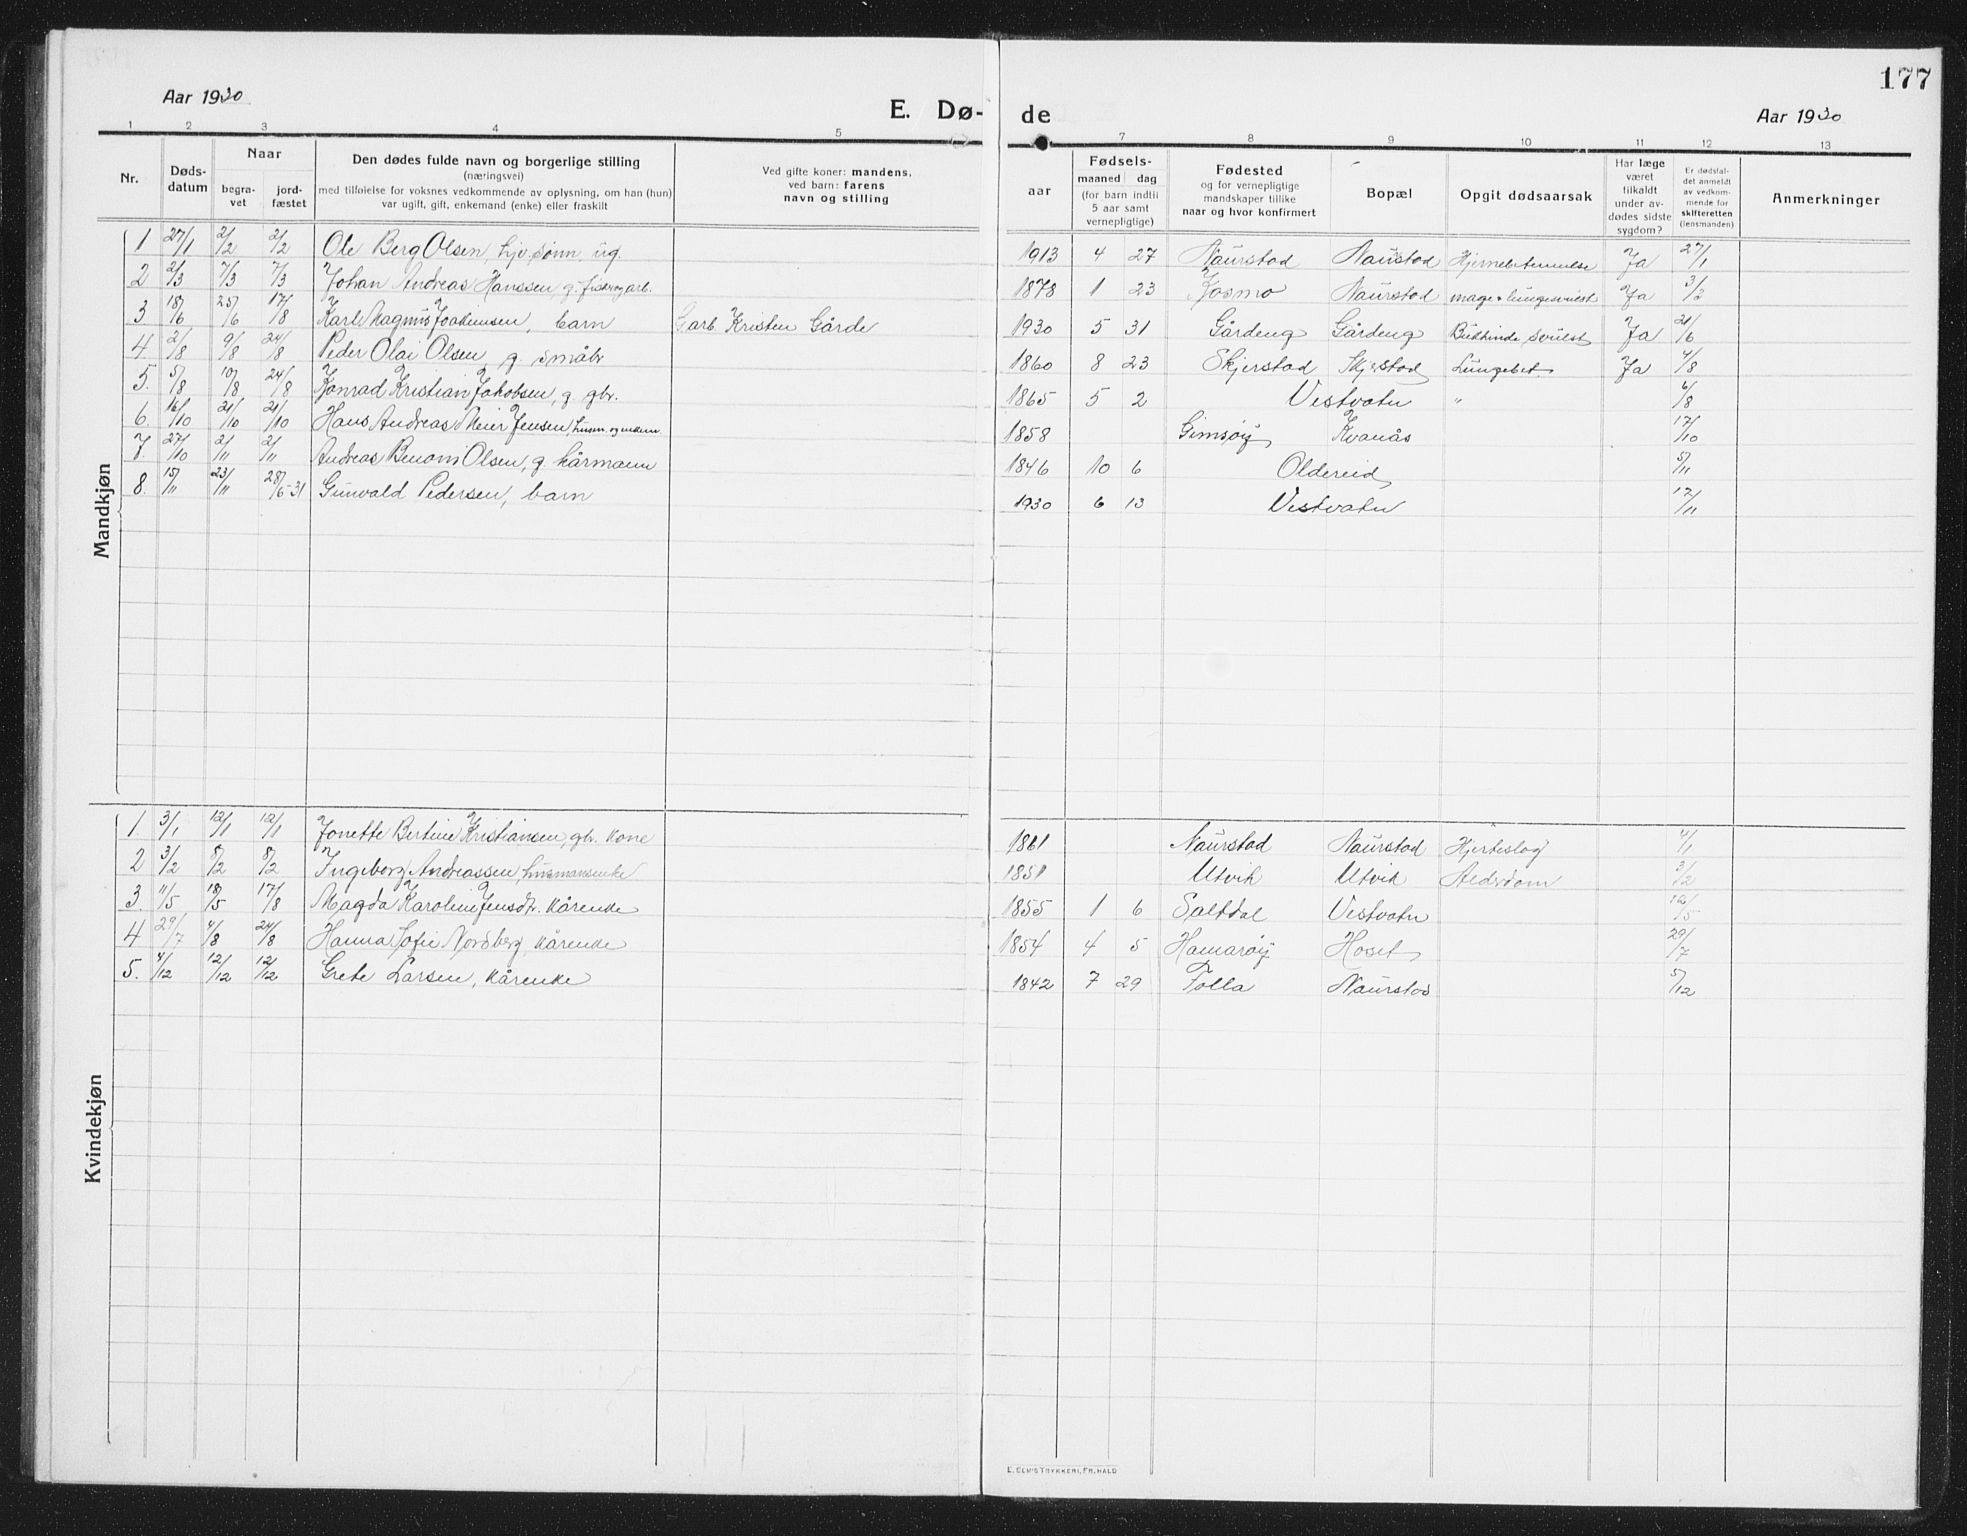 177
Aar 1930
E. Dø-
de
Aar 1930
1 2 3 4 5 7 8 9 10 11 12 13
Nr.
Døds-
datum
Naar
begra-
vet
jord-
fæstet
Den dødes fulde navn og borgerlige stilling
(næringsvei)
med tilføielse for voksnes vedkommende av oplysning, om han (hun)
var ugift, gift, enkemand (enke) eller fraskilt
Ved gifte koner: mandens,
ved barn: farens
navn og stilling
aar
Fødsels-
maaned dag
(for barn indtil
5 aar samt
vernepligtige)
Fødested
og for vernepligtige
mandskaper tillike
naar og hvor konfirmert
Bopæl
Opgit dødsaarsak
Har læge
været
tilkaldt
under av-
dødes sidste
sygdom?
Er dødsfal-
det anmeldt
av vedkom-
mende for
skifteretten
(lensmanden)
Anmerkninger
Mandkjøn
1 27/1 2/2 2/2 Ole Berg Olsen, hjv. sønn, ug. 1913 4 27 Naurstad Naurstad Hjernebetennelse Ja 27/1
2 2/3 7/3 7/3 Johan Andreas Hanssen, g. fisker og arb. 1878 1 23 Kosmo Naurstad mage & lungesvulst Ja 3/3
3 18/6 25/6 17/8 Karl Magnus Joakimsen, barn Garb Kristen Gårde 1930 5 31 Gårdeng Gårdeng Bukhinde svulst Ja 21/6
4. 2/8 9/8 24/8 Peder Olai Olsen g. småbr 1860 8 23 Skjerstad Skjerstad Lungebet. Ja 4/8
5. 5/8 10/8 24/8 Konrad Kristian Jakobsen, g. gbr. 1865 5 2 Vestvatn " 6/8
6. 16/10 21/10 21/10 Hans Andreas Meier Jensen, husm. og enkem. 1858 Gimsøy Kvanås 17/10
7. 27/10 2/11 2/11 Andreas Benoni Olsen, g kårmann 1846 10 6 Oldereid 5/11
8. 15/11 23/11 28/6-31 Gunvald Pedersen, barn 1930 6 13 Vestvatn 17/11
Kvindekjøn
1. 3/1 12/1 12/1 Jonette Bertine Kristiansen, gbr. kone 1861 Naurstad Naurstad Hjerteslag 4/1
2 3/2 8/2 8/2 Ingeborg Andreassen, husmansenke 1851 Utvik Utvik Alderdom 3/2
3. 11/5 18/5 17/8 Magda Karoline Jensdtr. kårenke 1855 1 6 Saltdal Vestvatn 12/5
4 29/7 4/8 24/8 Hanna Sofie Nordberg, kårenke 1854 4 5 Hamarøy Hoset 29/7
5. 4/12 12/12 12/12 Grete Larsen, kårenke 1842 7 29 Folla Naurstad 5/12
E. SEM'S TRYKKERI, FR.HALD